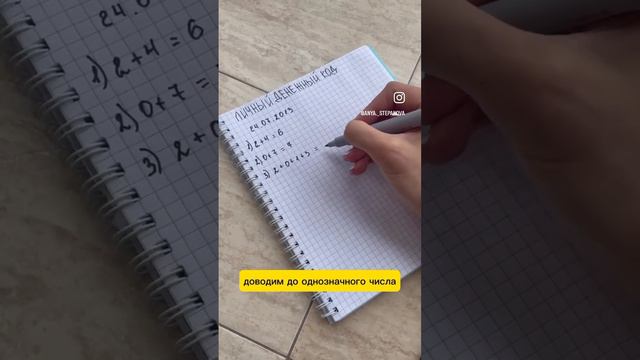 ЛИЧНЫЙ ДЕНЕЖНЫЙ КОД
24.07.2013
1) 2+4=6
2) 0+7=7
3) 2+0+1+3=
@ANYA_STEPANOVA
доводим до однозначного числа
24.0
1) 2+4=6
2) 0+7=
3) 2+0